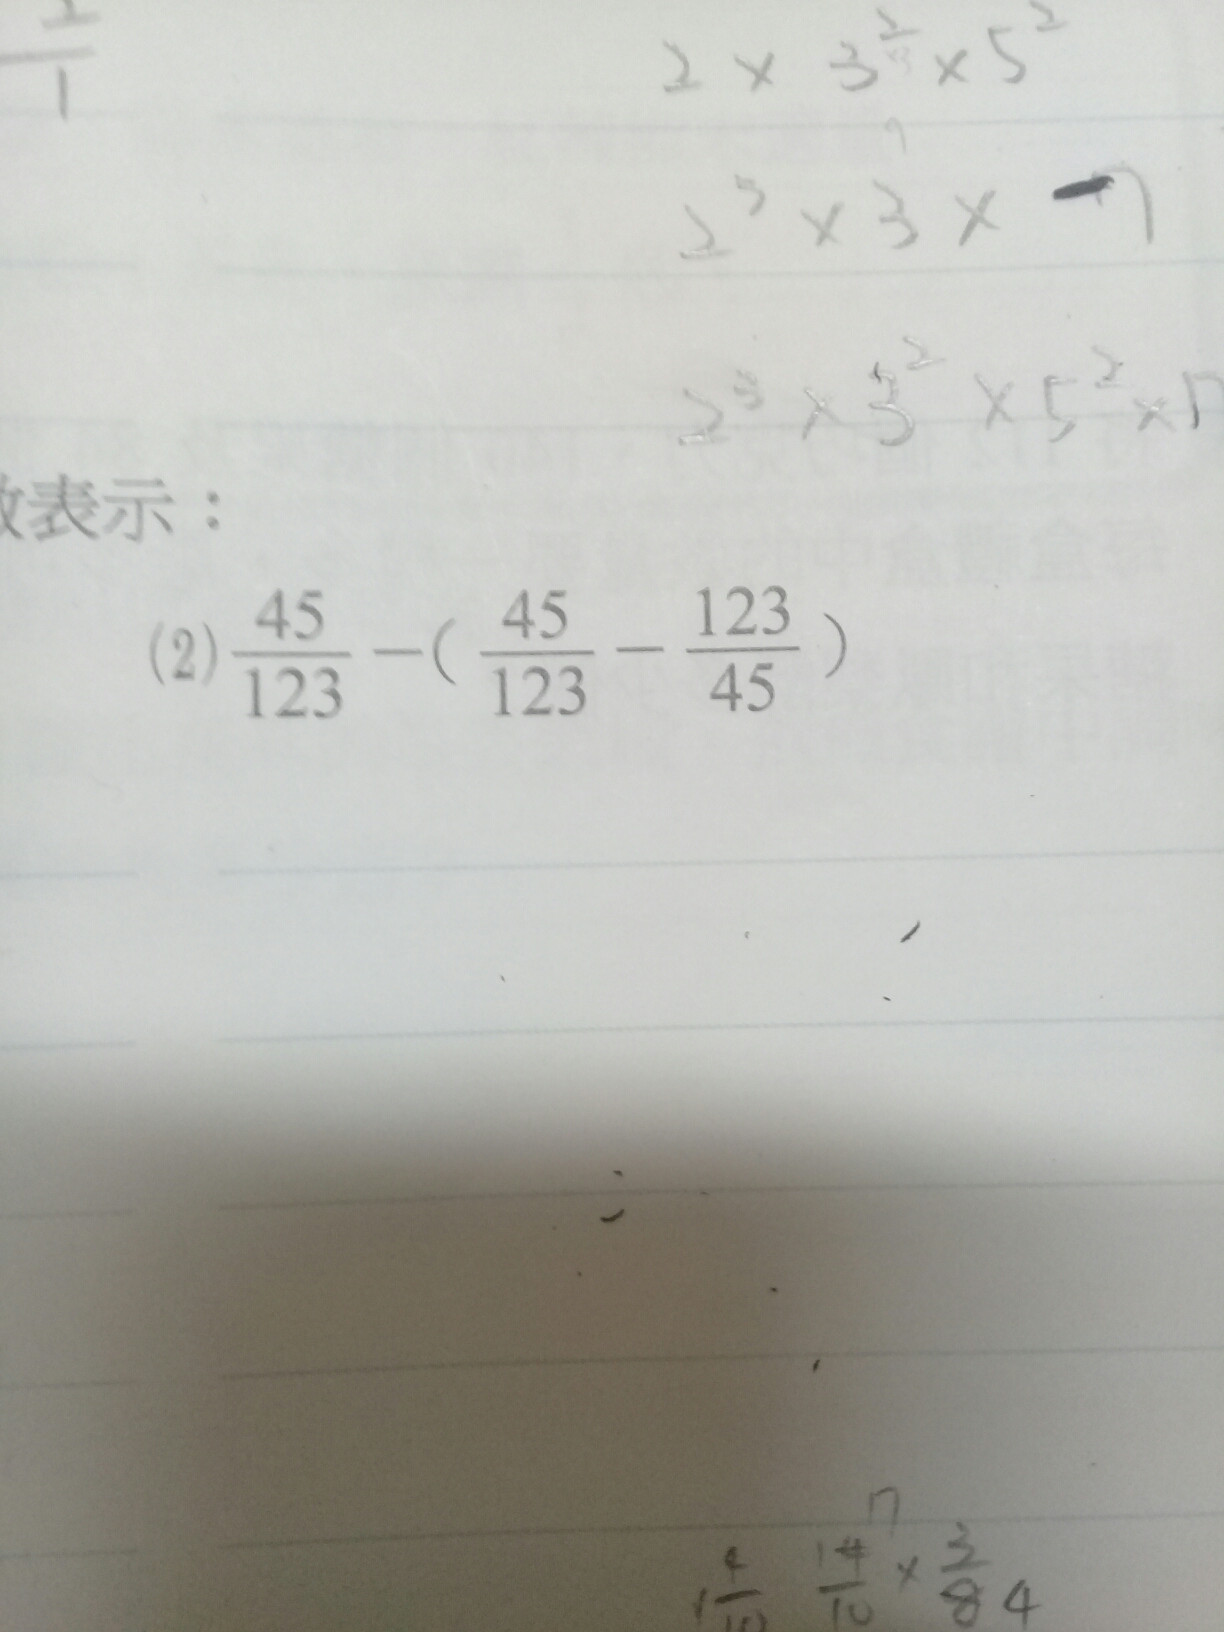 2 × 3² × 5²
2³ × 3 × 7
2³ × 3² × 5² × 7
數表示：
(2) 45/123 − ( 45/123 − 123/45 )
14/10 × 3/8 4